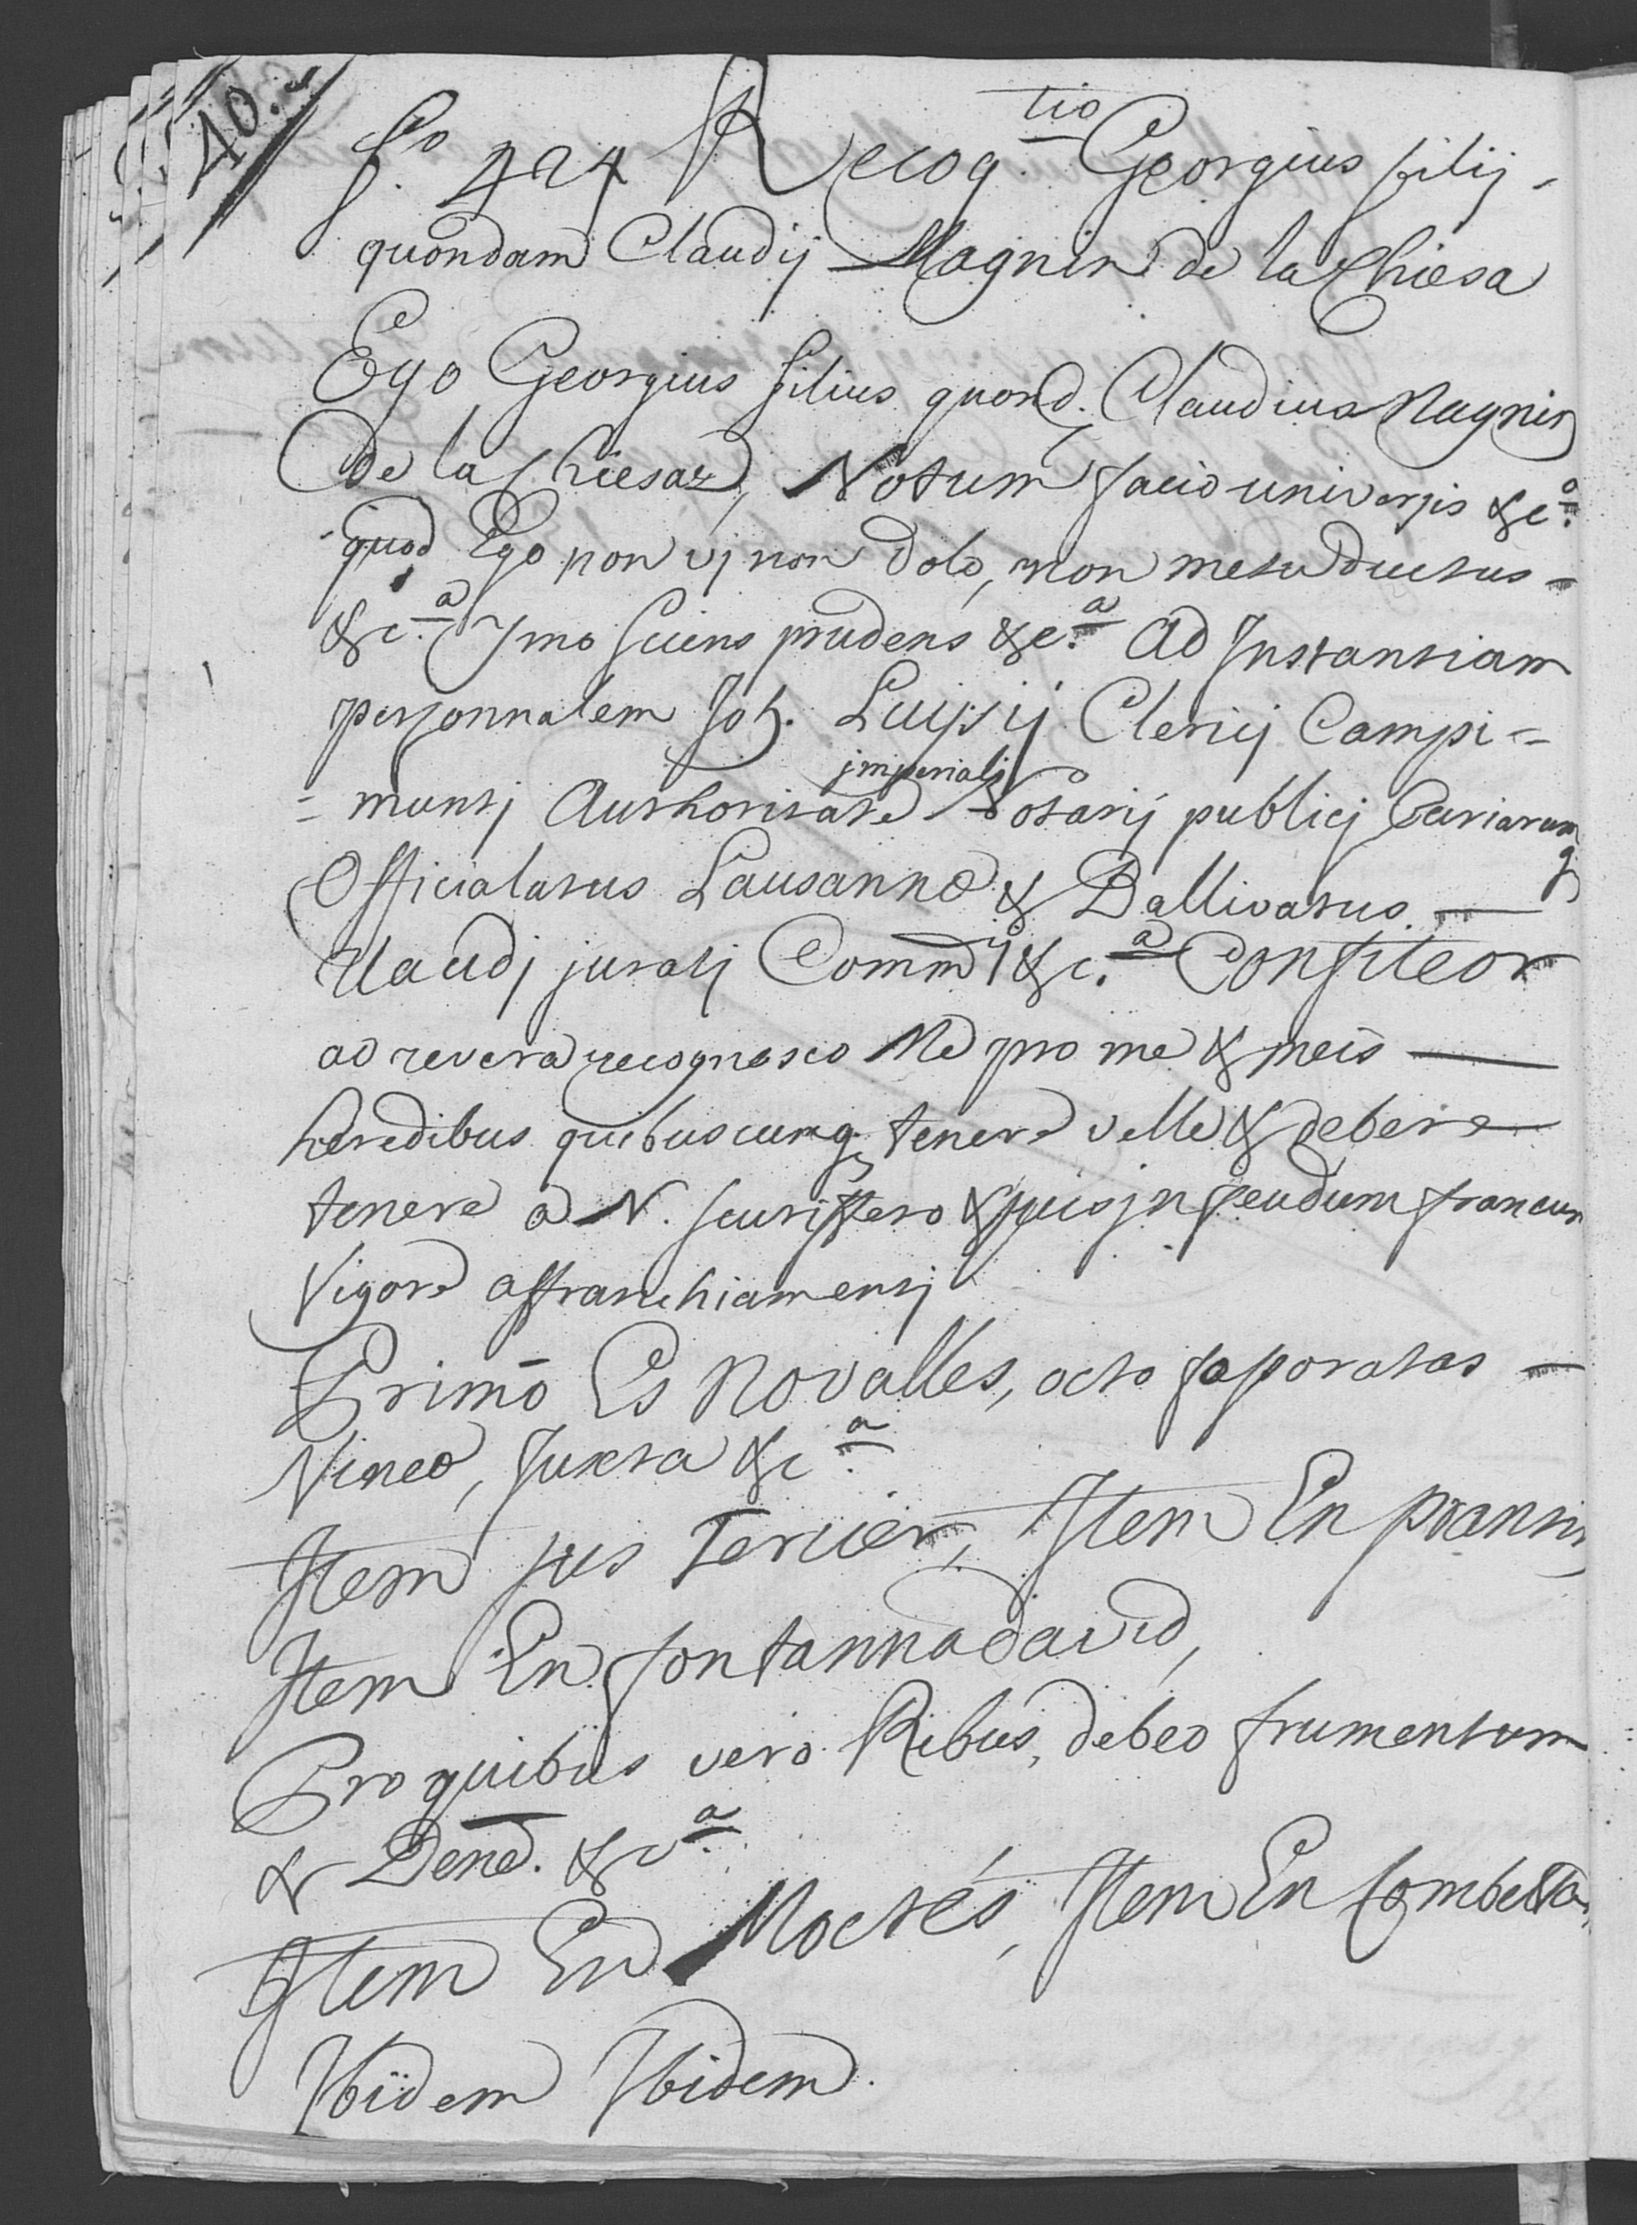 40.
fo. 424 Recog.tio Georgius filij
quondam Claudij Magnin de la Chiesa
Ego Georgius filius quond. Claudius Magnin
de la Chiesaz, Notum facio universis &c.a
quod Ego non vj non dolo, non metu ductus
&c.a Jmo sciens prudens &c.a Ad Instantiam
personnalem Joh. Luijsij Clericj Campi=
=muntj Authoritate jmperialj Notarij publicj Curiarumq
Officialatus Lausannæ & Ballivatus
Vaudj juratj Commj &c.a Confiteor
ac revera recognosco Me pro me & meis
heredibus quibuscunq tenere velle & debere
tenere a N. scutiffero & suis jn feudum francum
Vigore affranchiamentj
Primo Es Novalles, octo foporatas
Vineæ, Juxta &c.a
Item sus Tercier, Item En prannin
Item En fontanna david,
Pro quibus vero Rebus, debeo frumentum
& Dene. &c.a
Item En Moctés, Item En Combetta,
Ibidem Ibidem.